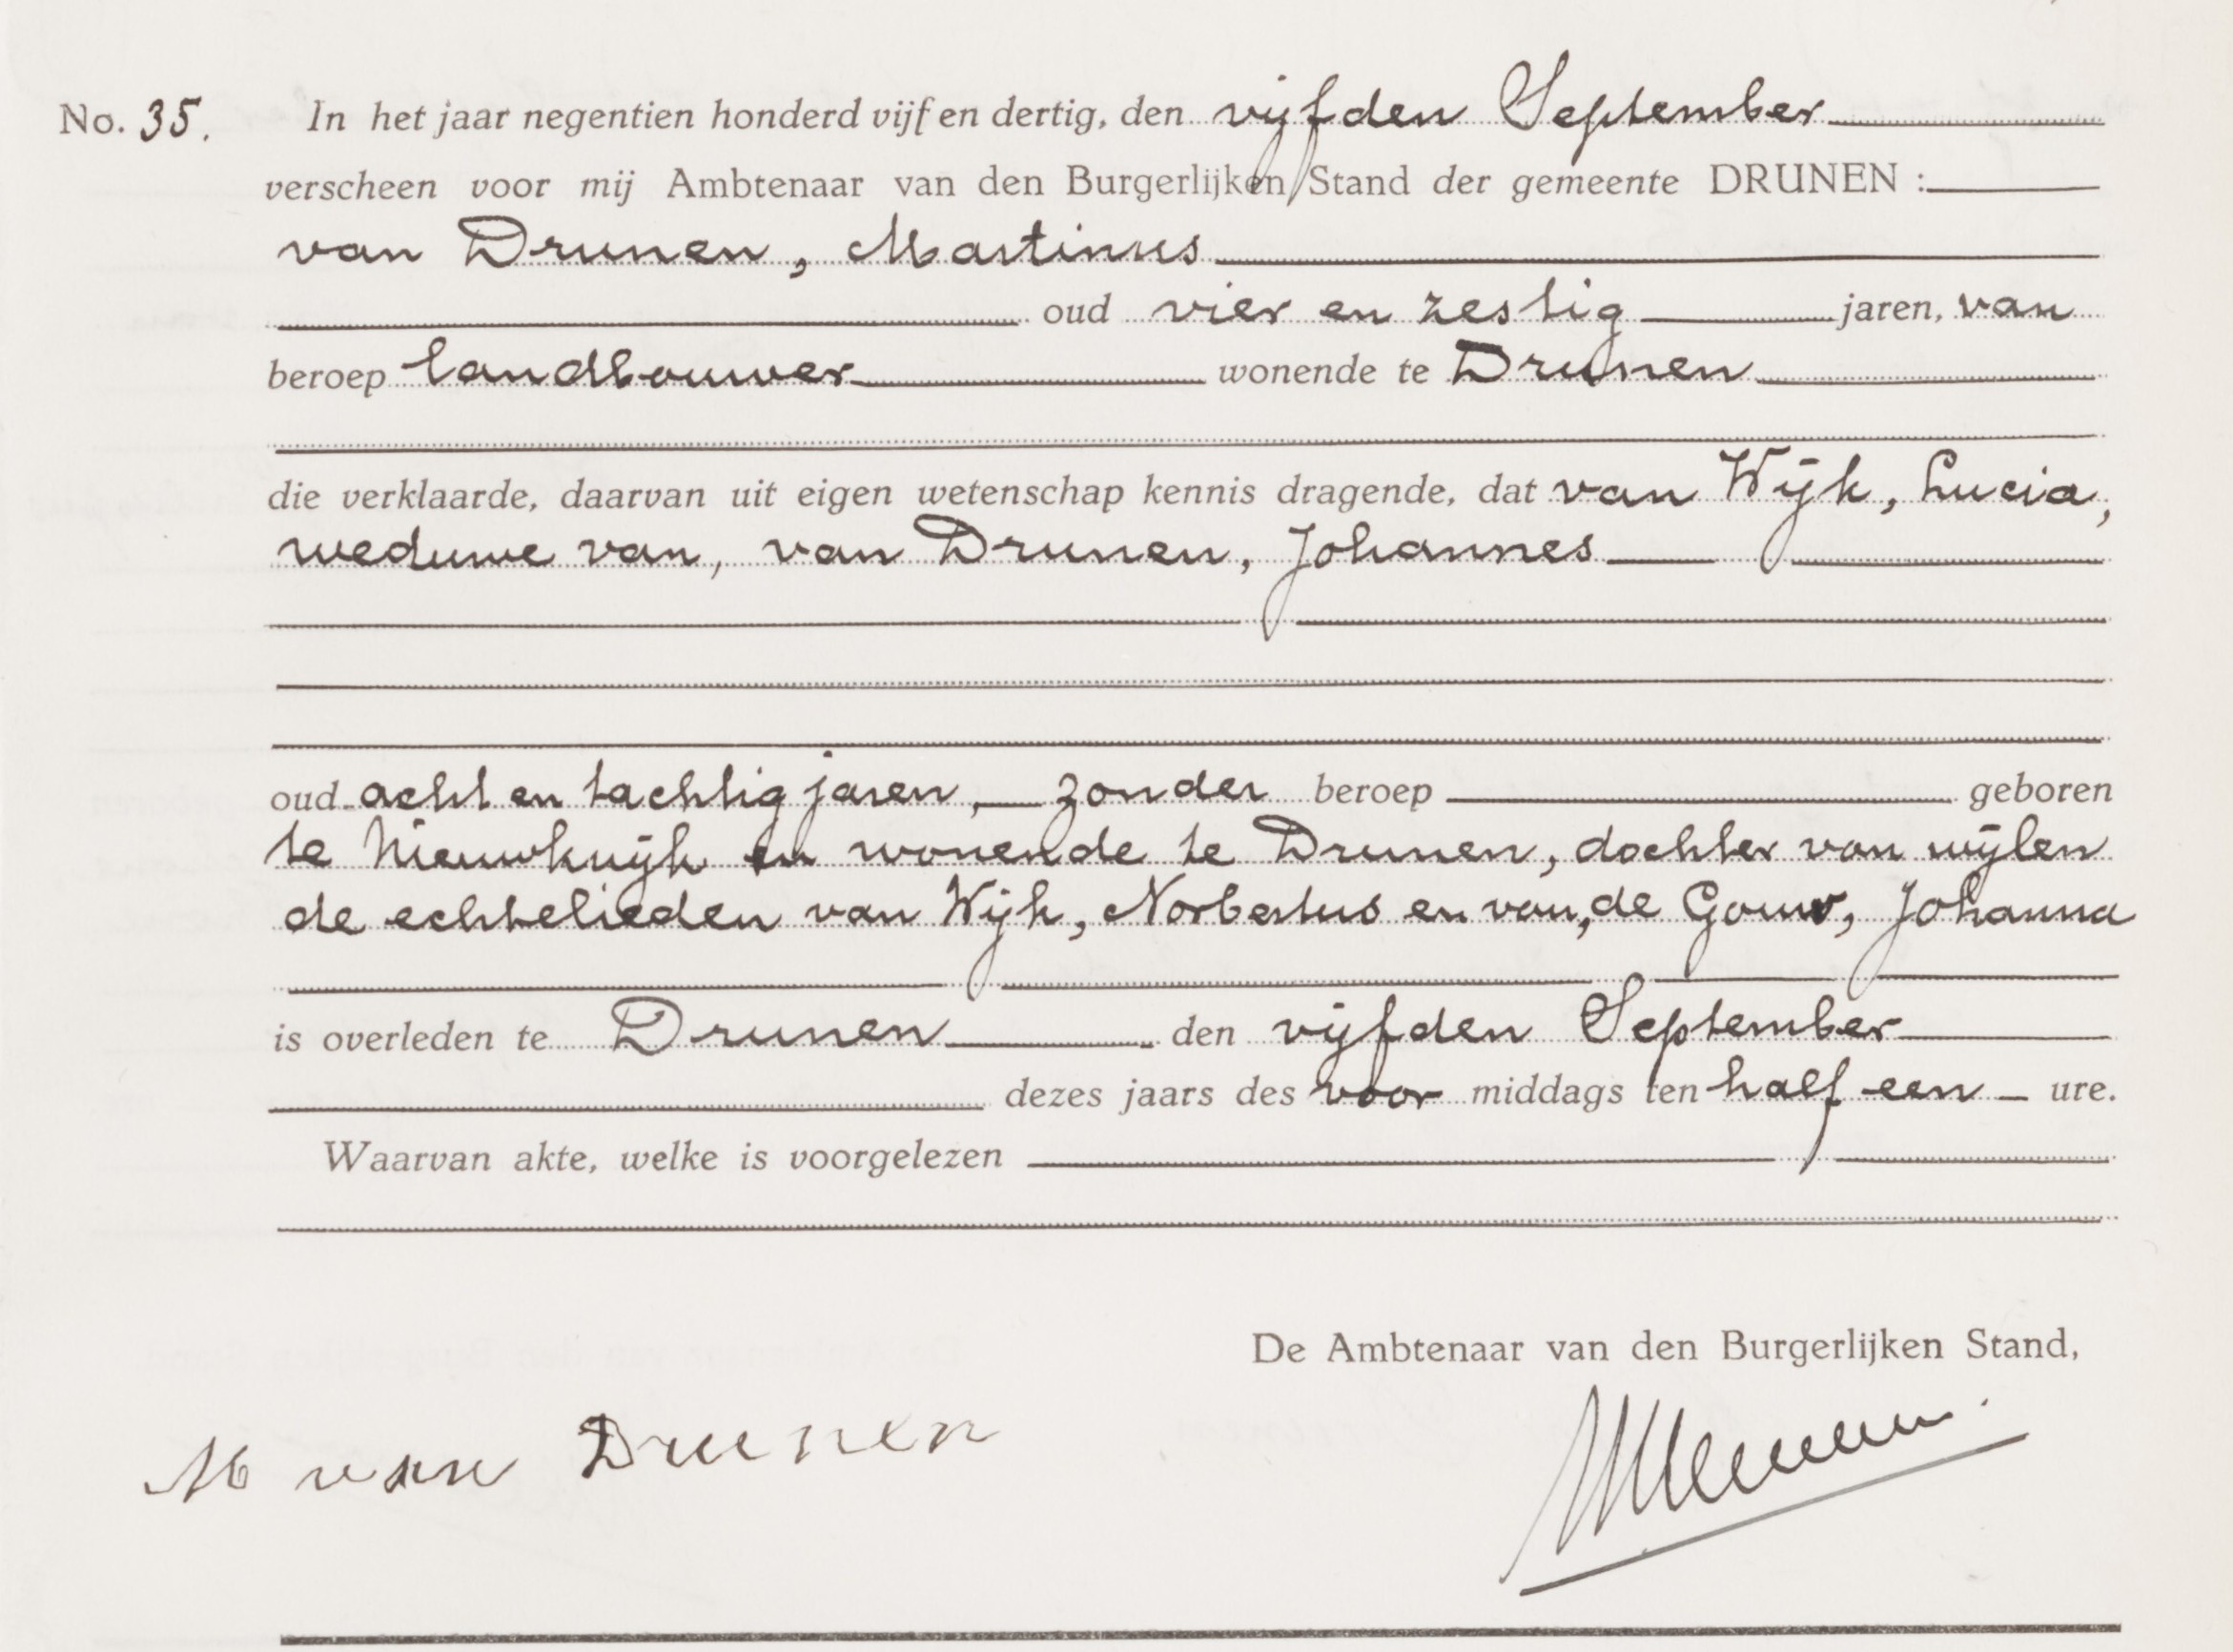 No. 35. In het jaar negentien honderd vijf en dertig, den vijfden September
verscheen voor mij Ambtenaar van den Burgerlijken Stand der gemeente DRUNEN :
van Drunen, Martinus
oud vier en zestig jaren, van
beroep landbouwer wonende te Drunen
die verklaarde, daarvan uit eigen wetenschap kennis dragende, dat van Wijk, Lucia,
weduwe van, van Drunen, Johannes
oud acht en tachtig jaren, zonder beroep geboren
te Nieuwkuijk en wonende te Drunen, dochter van wijlen
de echtelieden van Wijk, Norbertus en van, de Gouw, Johanna
is overleden te Drunen den vijfden September
dezes jaars des voor middags ten half een ure.
Waarvan akte, welke is voorgelezen
De Ambtenaar van den Burgerlijken Stand,
M van Drunen